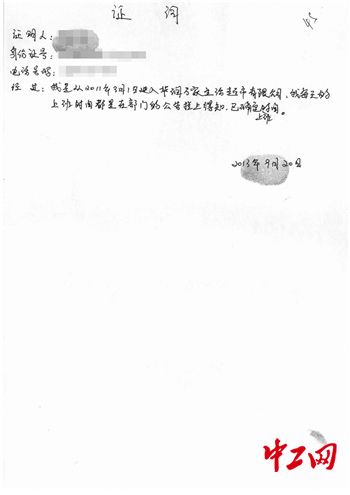 证 词
证明人:
身份证号:
电话号码:
经过: 我是从2011年3月1日进入华润万家生活超市有限公司,我每天的
上班时间都是在部门的公告栏上得知,已确定时间。
上班
2013年9月20日
中工网